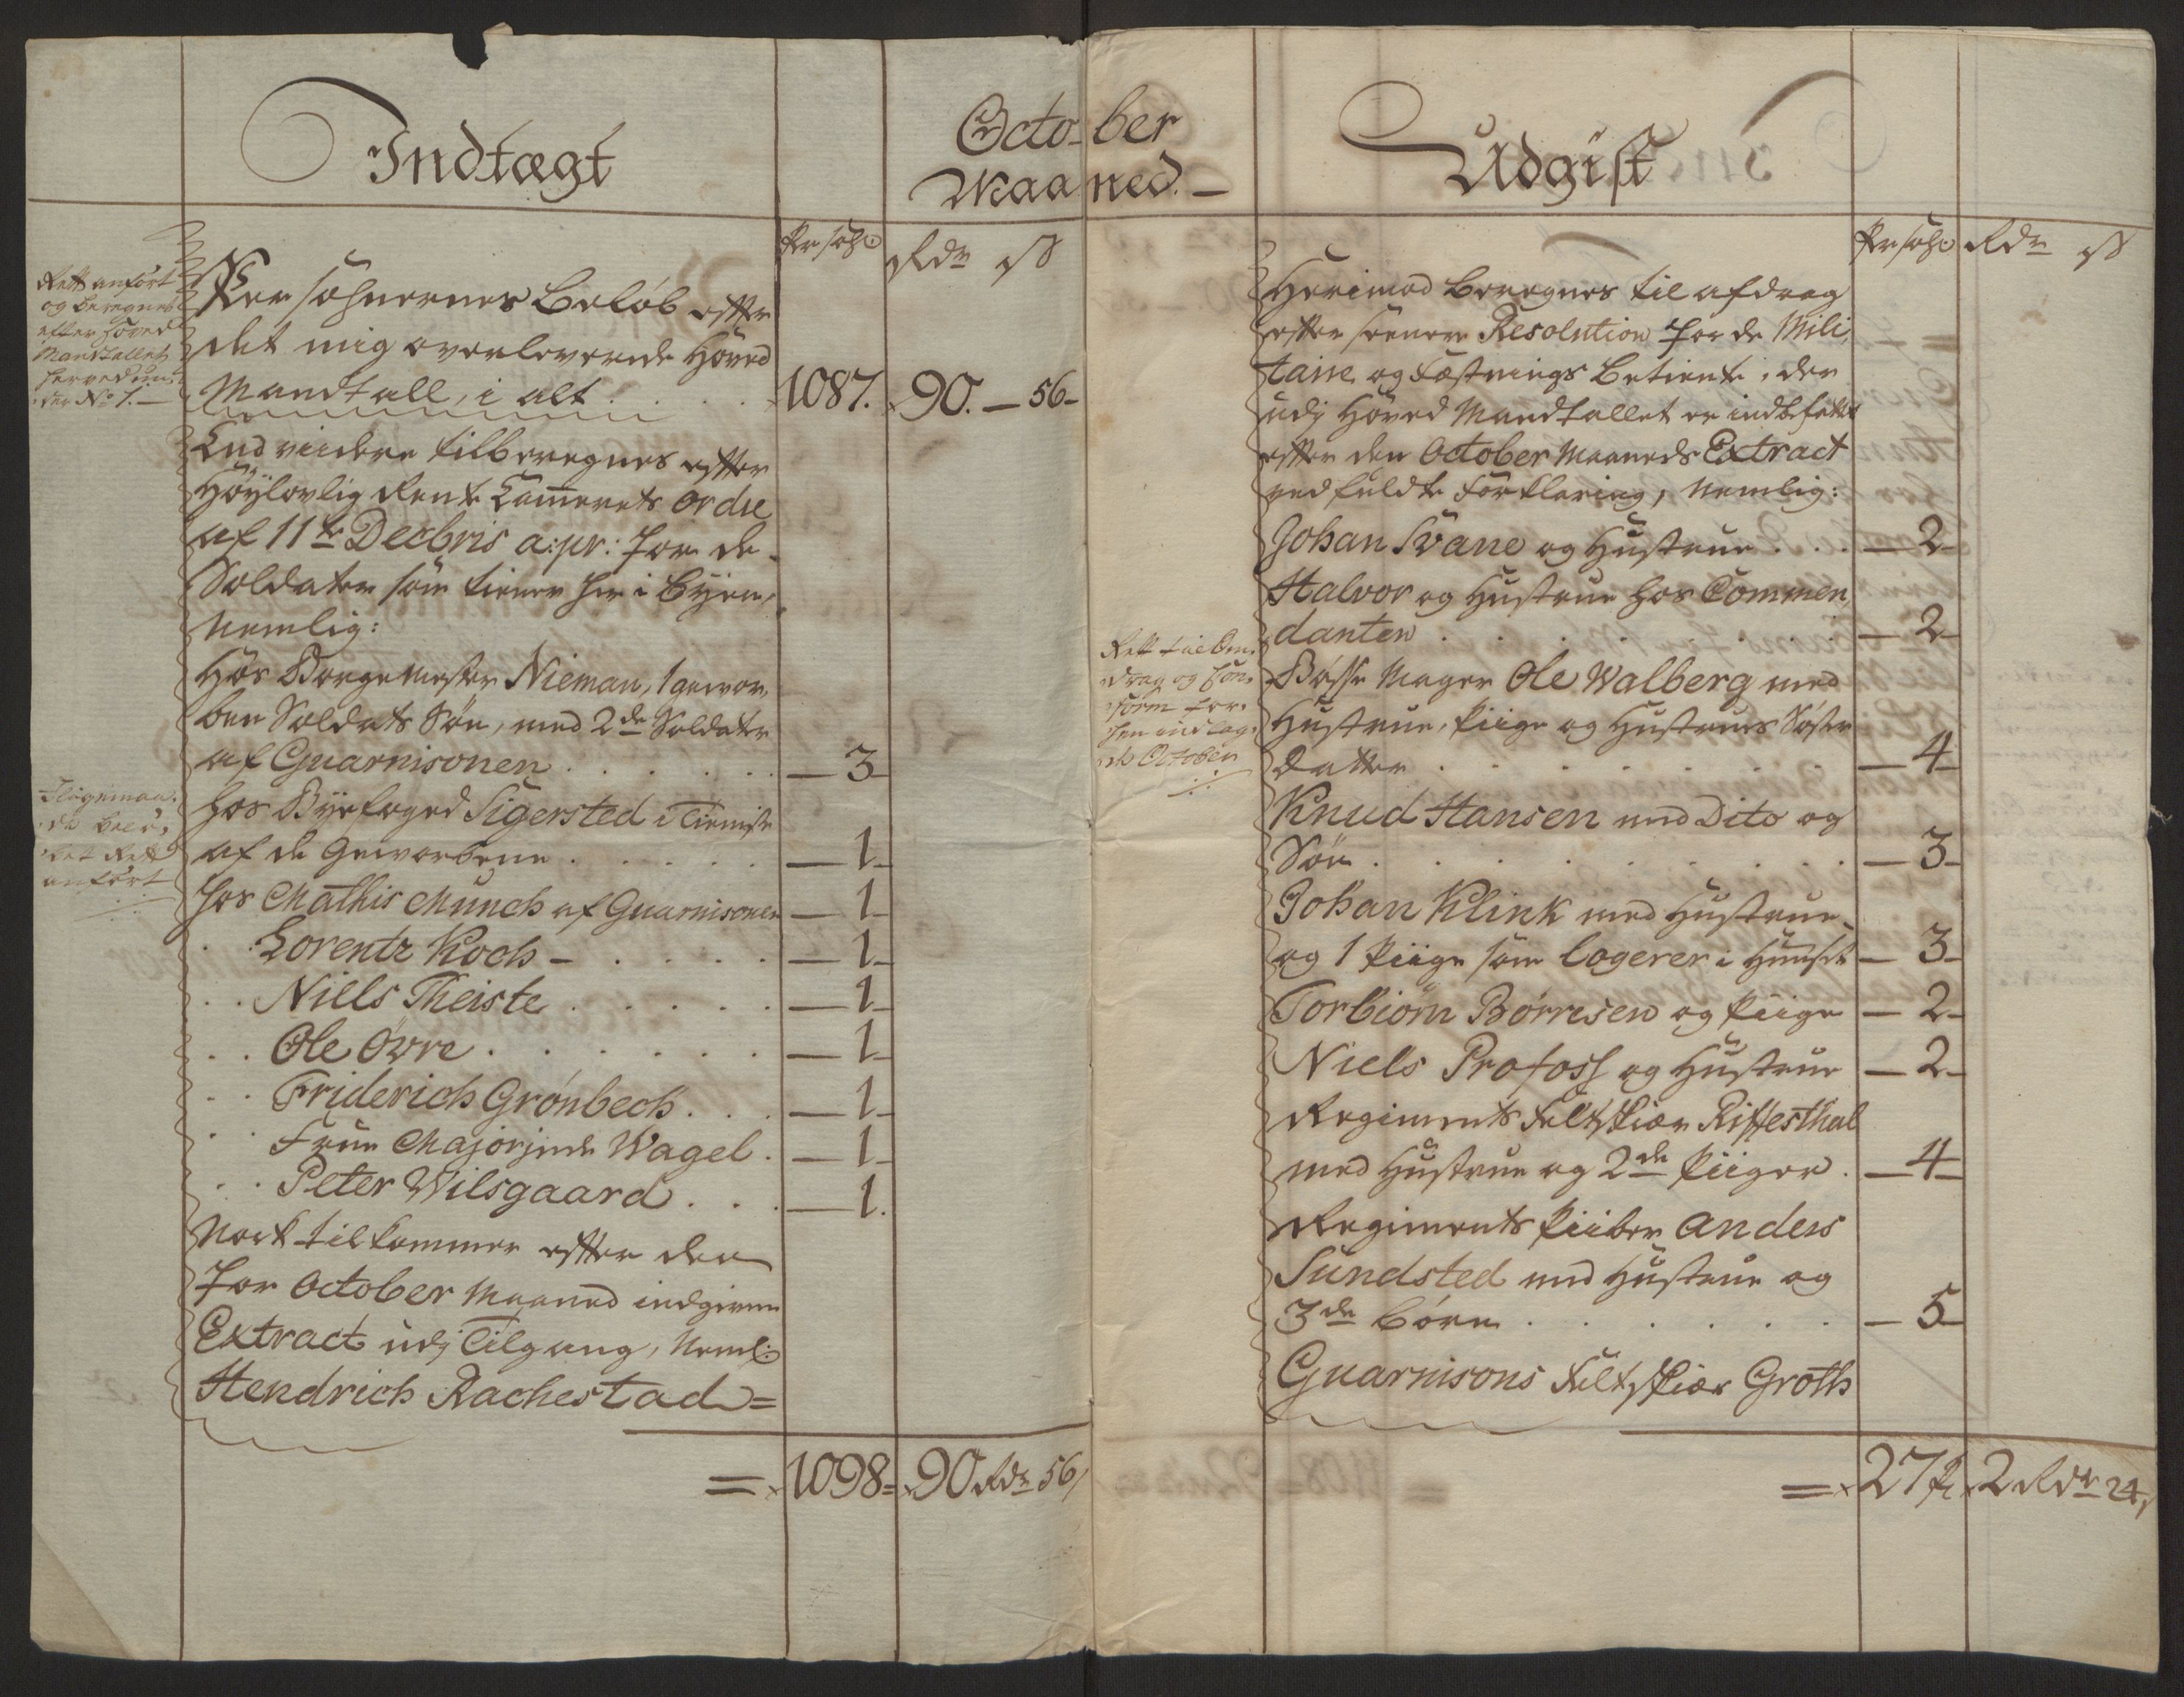 Indtægt
October
Maaned.
Persohn
Rdr
ß
Rett anført
og beregnet
efter Hoved
Mandtallet
herved un-
der No 1.
Persohnernes Beløb efter
det mig overleverede Hoved
Mandtall, i alt . . . . 1087. 90. — 56-
End viidere tilberegnes efter
Høylovlig Rente Cammerets ordre
af 11te Decbris a: pr: for de
Soldater som tiener her i Byen,
Nemlig:
Hos Borgemester Nieman, 1 gewor-
ben Soldats Søn, med 2de Soldater
af Guarnisonen . . . . . — 3-
hos Byefoged Sigersted i Tieniste
af de Geworbene . . . . . — 1-
anført
hos Mathis Münch af Guarnisonen — 1-
. . Lorentz Koch - . . . . — 1-
. . Niels Theiste . . . . . — 1-
. . Ole Øvre . . . . . . — 1-
. . Friderich Grønbech . . . — 1-
. . Frue Majorinde Wagel . — 1-
. . Peter Wilsgaard . . . — 1.
Nock tilkommer efter den
for October Maaned indgivne
Extract udj Tilgang, Neml:
Hendrich Rachestad =
= 1098= 90 Rdr 56
Udgift
Persohn
Rdr
ß
Herimod beregnes til afdrag
efter Resolution for de Mili-
taire og Fæstnings Betiente, der
udj Hoved Mandtallet er indbefattet
efter den October Maaneds Extract
vedfuldte Forklaring, Nemlig:
Johan Svane og Hustrue . . . — 2-
Halvor og Hustrue hos Commen-
danten . . . . . . . — 2-
October
Bøsse Mager Ole Walberg med
Hustrue, Piige og Hustrues Søster
Datter . . . . . . . — 4-
Knud Hansen med Dito og
Søn . . . . . . . . — 3-
Johan Klink med Hustrue
og 1 Piige som logerer i Huuset — 3-
Torbiørn Børresen og Piige — 2-
Niels Profoss og Hustrue — 2-
Regiments Feltskiær Riffesthal
med Hustrue og 2de Piiger . — 4-
Regiments Piiber Anders
Sundsted med Hustrue og
3de Børn . . . . . . — 5-
Guarnisons Feltskiær Groth
= 27 P. 2 Rdr 24